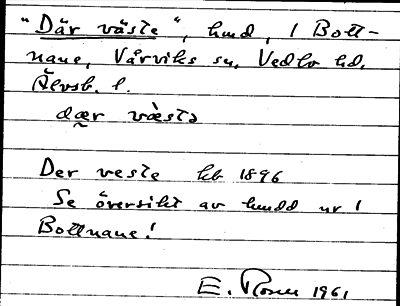 "Där väste", hmd, 1 Bott-
nane, Vårviks sn, Vedbo hd,
Älvsb. l.
dær vɛ̀stə
Der veste hb 1896
Se översikt av hmdd nr 1
Bottnane!
E. Rosen 1961